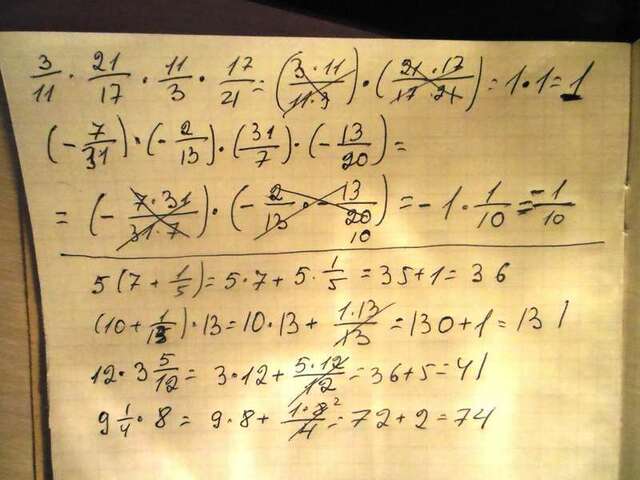 3/11 · 21/17 · 11/3 · 17/21 = (3·11/11·3) · (21·17/17·21) = 1·1 = 1
(-7/31) · (-2/13) · (31/7) · (-13/20) =
= (-7·31/31·7) · (-2/13 · -13/20 10) = -1 · 1/10 = -1/10
5(7 + 1/5) = 5·7 + 5·1/5 = 35 + 1 = 36
(10 + 1/13) · 13 = 10·13 + 1·13/13 = 130 + 1 = 131
12 · 3 5/12 = 3·12 + 5·12/12 = 36 + 5 = 41
9 1/4 · 8 = 9·8 + 1·8 2/4 = 72 + 2 = 74